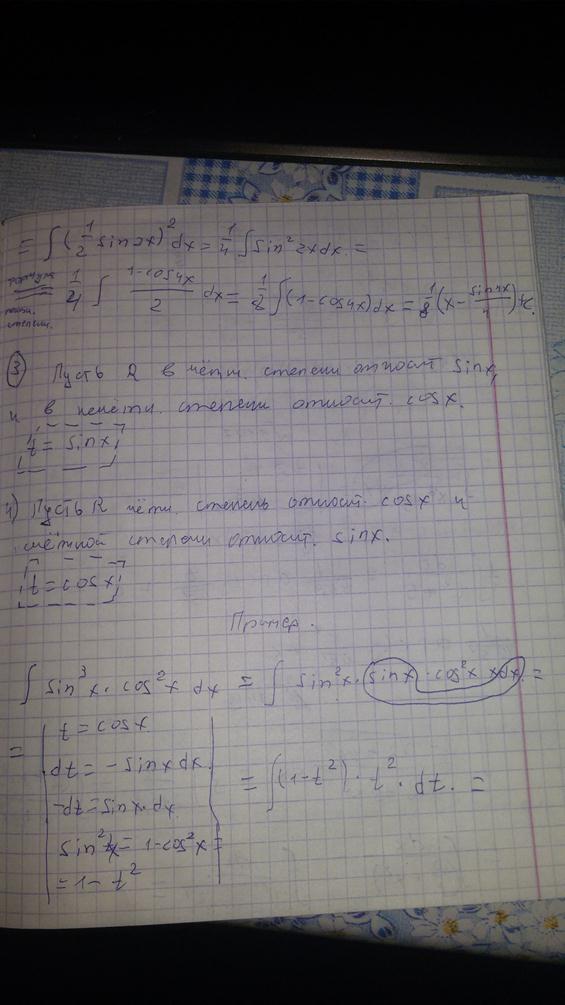 = ∫(1/2 sin2x)² dx = 1/4 ∫sin²2xdx =
формула
пониж.
степени.
1/4 ∫ (1-cos4x)/2 dx = 1/8 ∫(1-cos4x)dx = 1/8 (x - sin4x/4) + C.
③ Пусть R в чётн. степени относит sinx,
и в нечётн. степени относит. cosx.
t = sinx
4) Пусть R чётн. степень относит. cosx и
степени относит. sinx.
t = cosx
Пример.
∫ sin³x · cos²x dx = ∫ sin²x · sinx · cos²x xdx =
= | t = cosx
dt = - sinxdx.
-dt = sinx·dx
sin²x = 1-cos²x =
= 1 - t² |
= ∫(1-t²) · t² · dt. =